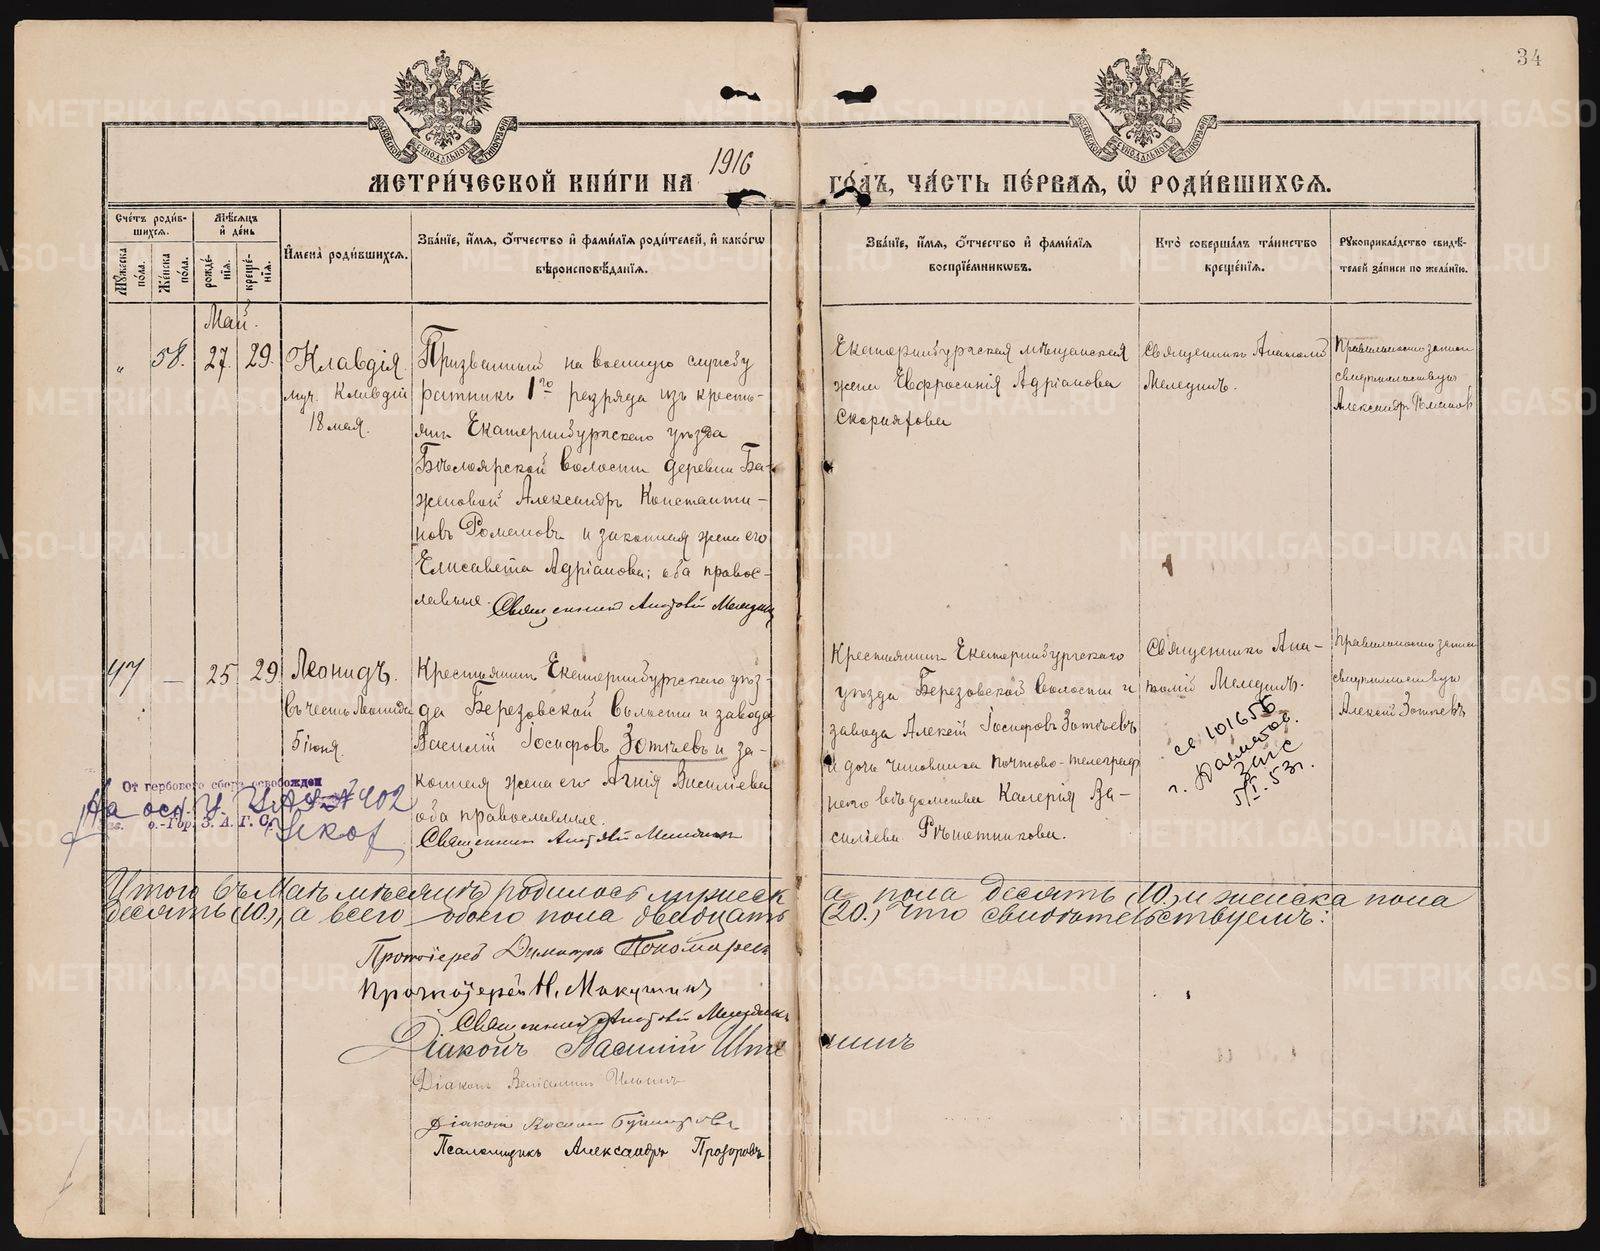 34
МОСКОВСКОЙ СѴНОДАЛЬНОЙ ТИПОГРАФІИ
МОСКОВСКОЙ СѴНОДАЛЬНОЙ ТИПОГРАФІИ
МЕТРИ́ЧЕСКОЙ КНИ́ГИ НА 1916 ГО́ДЪ, ЧА́СТЬ ПЕ́РВАЯ, Ѡ҆ РОДИ́ВШИХСЯ.
Сче́тъ роди́в-
шихся.
Му́жеска по́ла.
Же́нска по́ла.
Мѣ́сяцъ
и҆ де́нь
рожде́-
нія.
креще́-
нія.
И҆мена̀ роди́вшихся.
Зва́нїе, и҆́мя, ѻ҆́тчество и҆ фами́лїя роди́телей, и҆ како́гѡ
вѣроисповѣ́данїя.
Зва́нїе, и҆́мя, ѻ҆́тчество и҆ фами́лїя
воспрїе́мникѡвъ.
Кто̀ соверша́лъ та́инство
креще́нїя.
Рꙋкоприкла́дство свидѣ́-
телей за́писи по жела́нїю.
Май.
„ 58. 27. 29.
Клавдія
муч. Клавдіи
18 мая.
Призванный на военную службу
ратникъ 1го разряда изъ кресть-
янъ Екатеринбургскаго уѣзда
Бѣлоярской волости деревни Ба-
женовой Александръ Константи-
новъ Романовъ и законная жена его
Елисавета Адріанова; оба правос-
лавные. Священникъ Анатолій Мелединъ
Екатеринбургская мѣщанская
жена Евфросинія Адріанова
Скорнякова
Священникъ Анатолій
Мелединъ.
Правильность записи
свидѣтельствую
Александръ Романовъ
47 — 25 29
Леонидъ.
въ честь Леонида
5 іюня.
Крестьянинъ Екатеринбургскаго уѣз-
да Березовской волости и завода
Василій Іосифовъ Зотѣевъ и за-
конная жена его Агнія Васильева
оба православные.
Священникъ Анатолій Мелединъ
Крестьянинъ Екатеринбургскаго
уѣзда Березовской волости и
завода Алексій Іосифовъ Зотѣевъ
и дочь чиновника почтово-телеграф
наго вѣдомства Калерія Ва-
сильева Рѣшетникова.
Священникъ Ана-
толій Мелединъ.
св 101656
ЗАГС
5/I.53г.
Правильность записи
свидѣтельствую
Алексій Зотѣевъ
От гербового сбора освобожден
На осн. 402
о.-Гор. З. А. Г. С.
Итого въ Маѣ мѣсяцѣ родилось мужеска пола десять (10.) и женска пола
десять (10.), а всего обоего пола двадцать (20.) что свидѣтельствуемъ:
Протоіерей Димитрій Пономаревъ
Протоіерей Н. Макушинъ
Священникъ Анатолій Мелединъ
Діаконъ Василій
Діаконъ Веніаминъ Ильинъ
Діаконъ Василій
Псаломщикъ Александръ Прозоровъ
METRIKI.GASO-URAL.RU